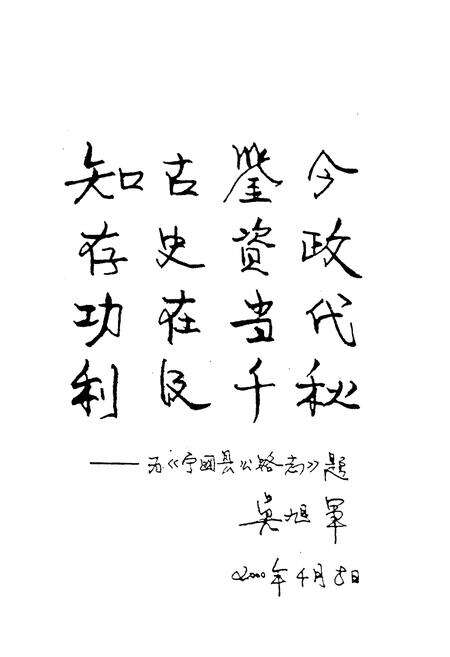 知古鉴今
存史資政
功在当代
利及千秋
——为《宁国县公路志》题
吴旭军
2000年4月8日